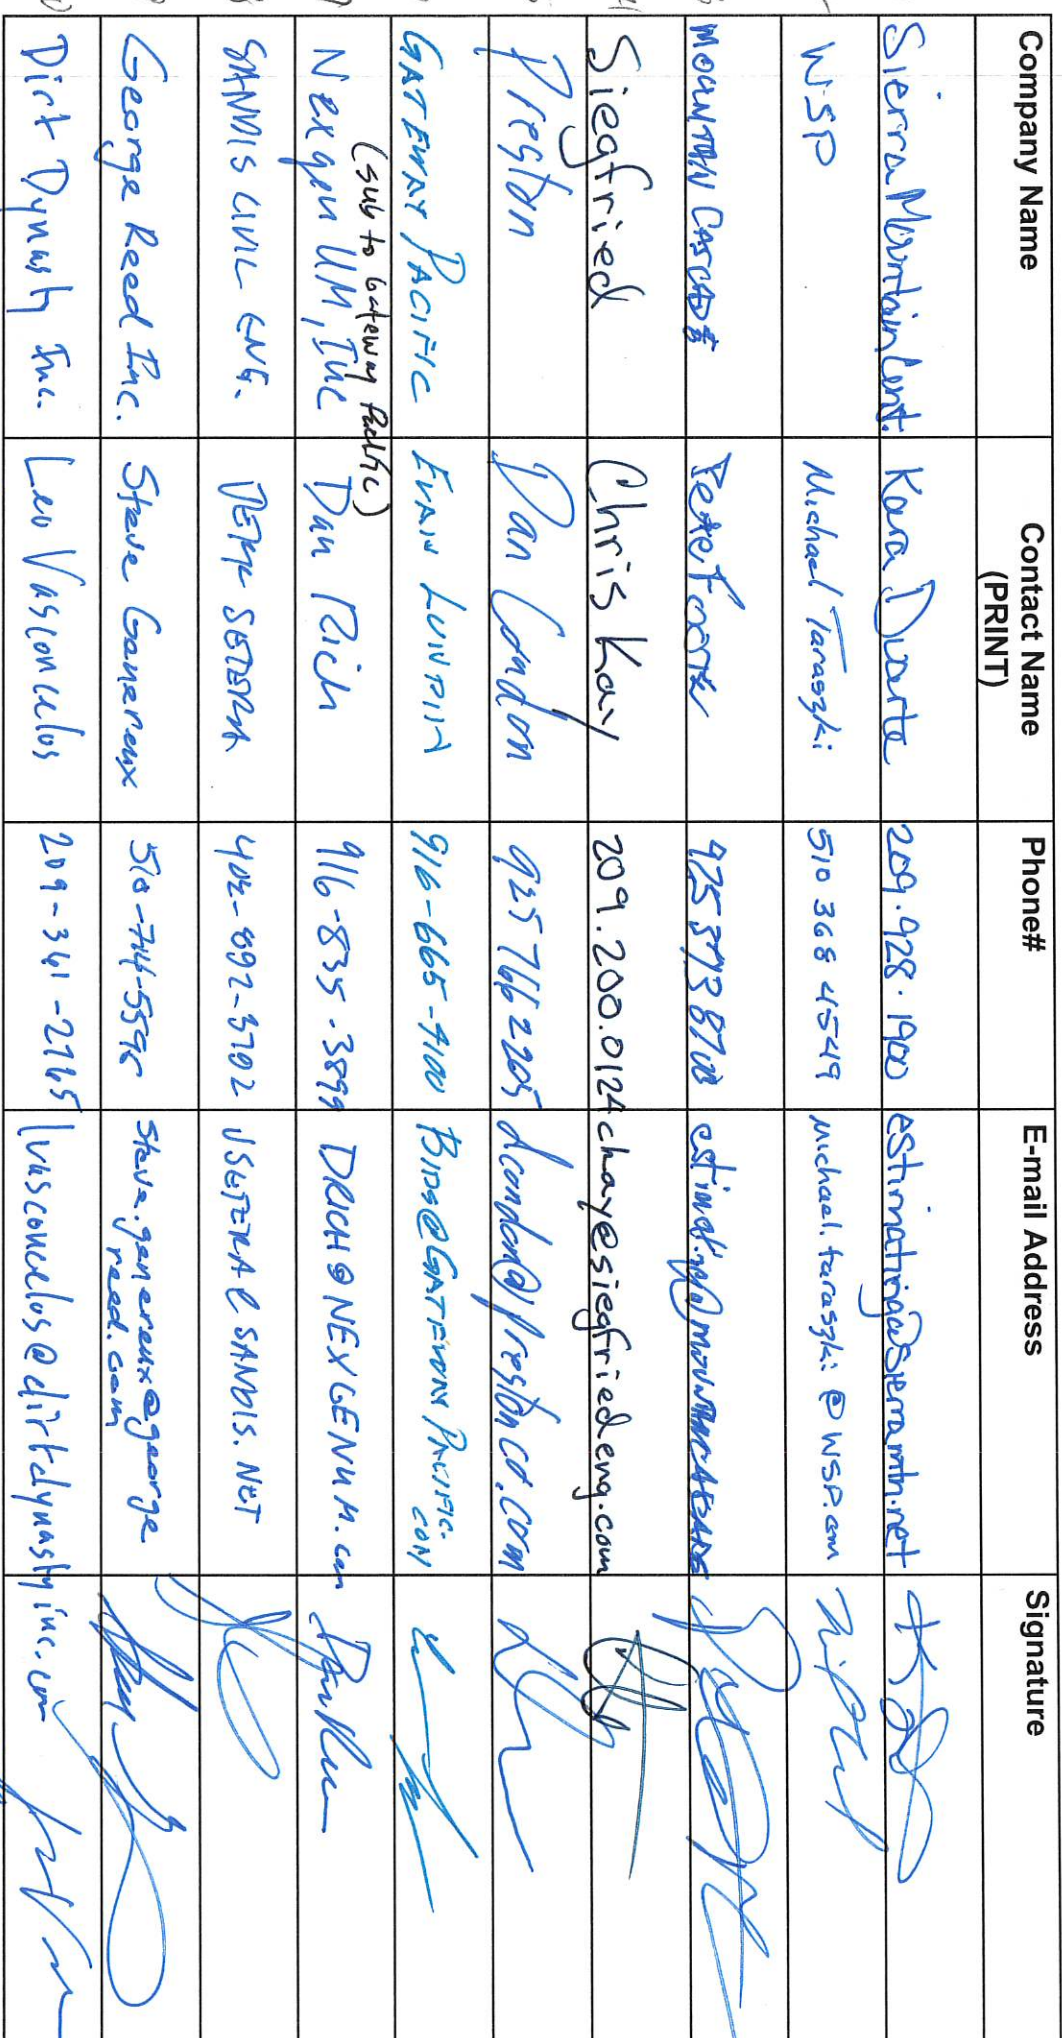 Company Name Contact Name (PRINT) Phone# E-mail Address Signature
Sierra Mountain Const. Kara Duarte 209.928.1900 estimating@sierramtn.net
WSP Michael Taraszki 510 368 4549 michael.taraszki@wsp.com
MOUNTAIN CASCADE 925 373 8700 estimating@
Siegfried Chris Kay 209.200.0124 ckay@siegfriedeng.com
Preston Dan Condon 925 766 2205 dcondon@prestonco.com
GATEWAY PACIFIC EVAN 916-665-4100 BIDS@GATEWAY PACIFIC.COM
(sub to Gateway Pacific)
Nexgen UM, Inc Dan Rich 916-835-3899 DRICH@NEXGENUM.com
SANDIS CIVIL ENG. 408-892-3702 @SANDIS.NET
George Reed Inc. Steve Genereux 510-714-5595 steve.genereux@george
reed.com
Dirt Dynasty Inc. Leo Vasconcelos 209-361-2765 lvasconcelos@dirtdynastyinc.com